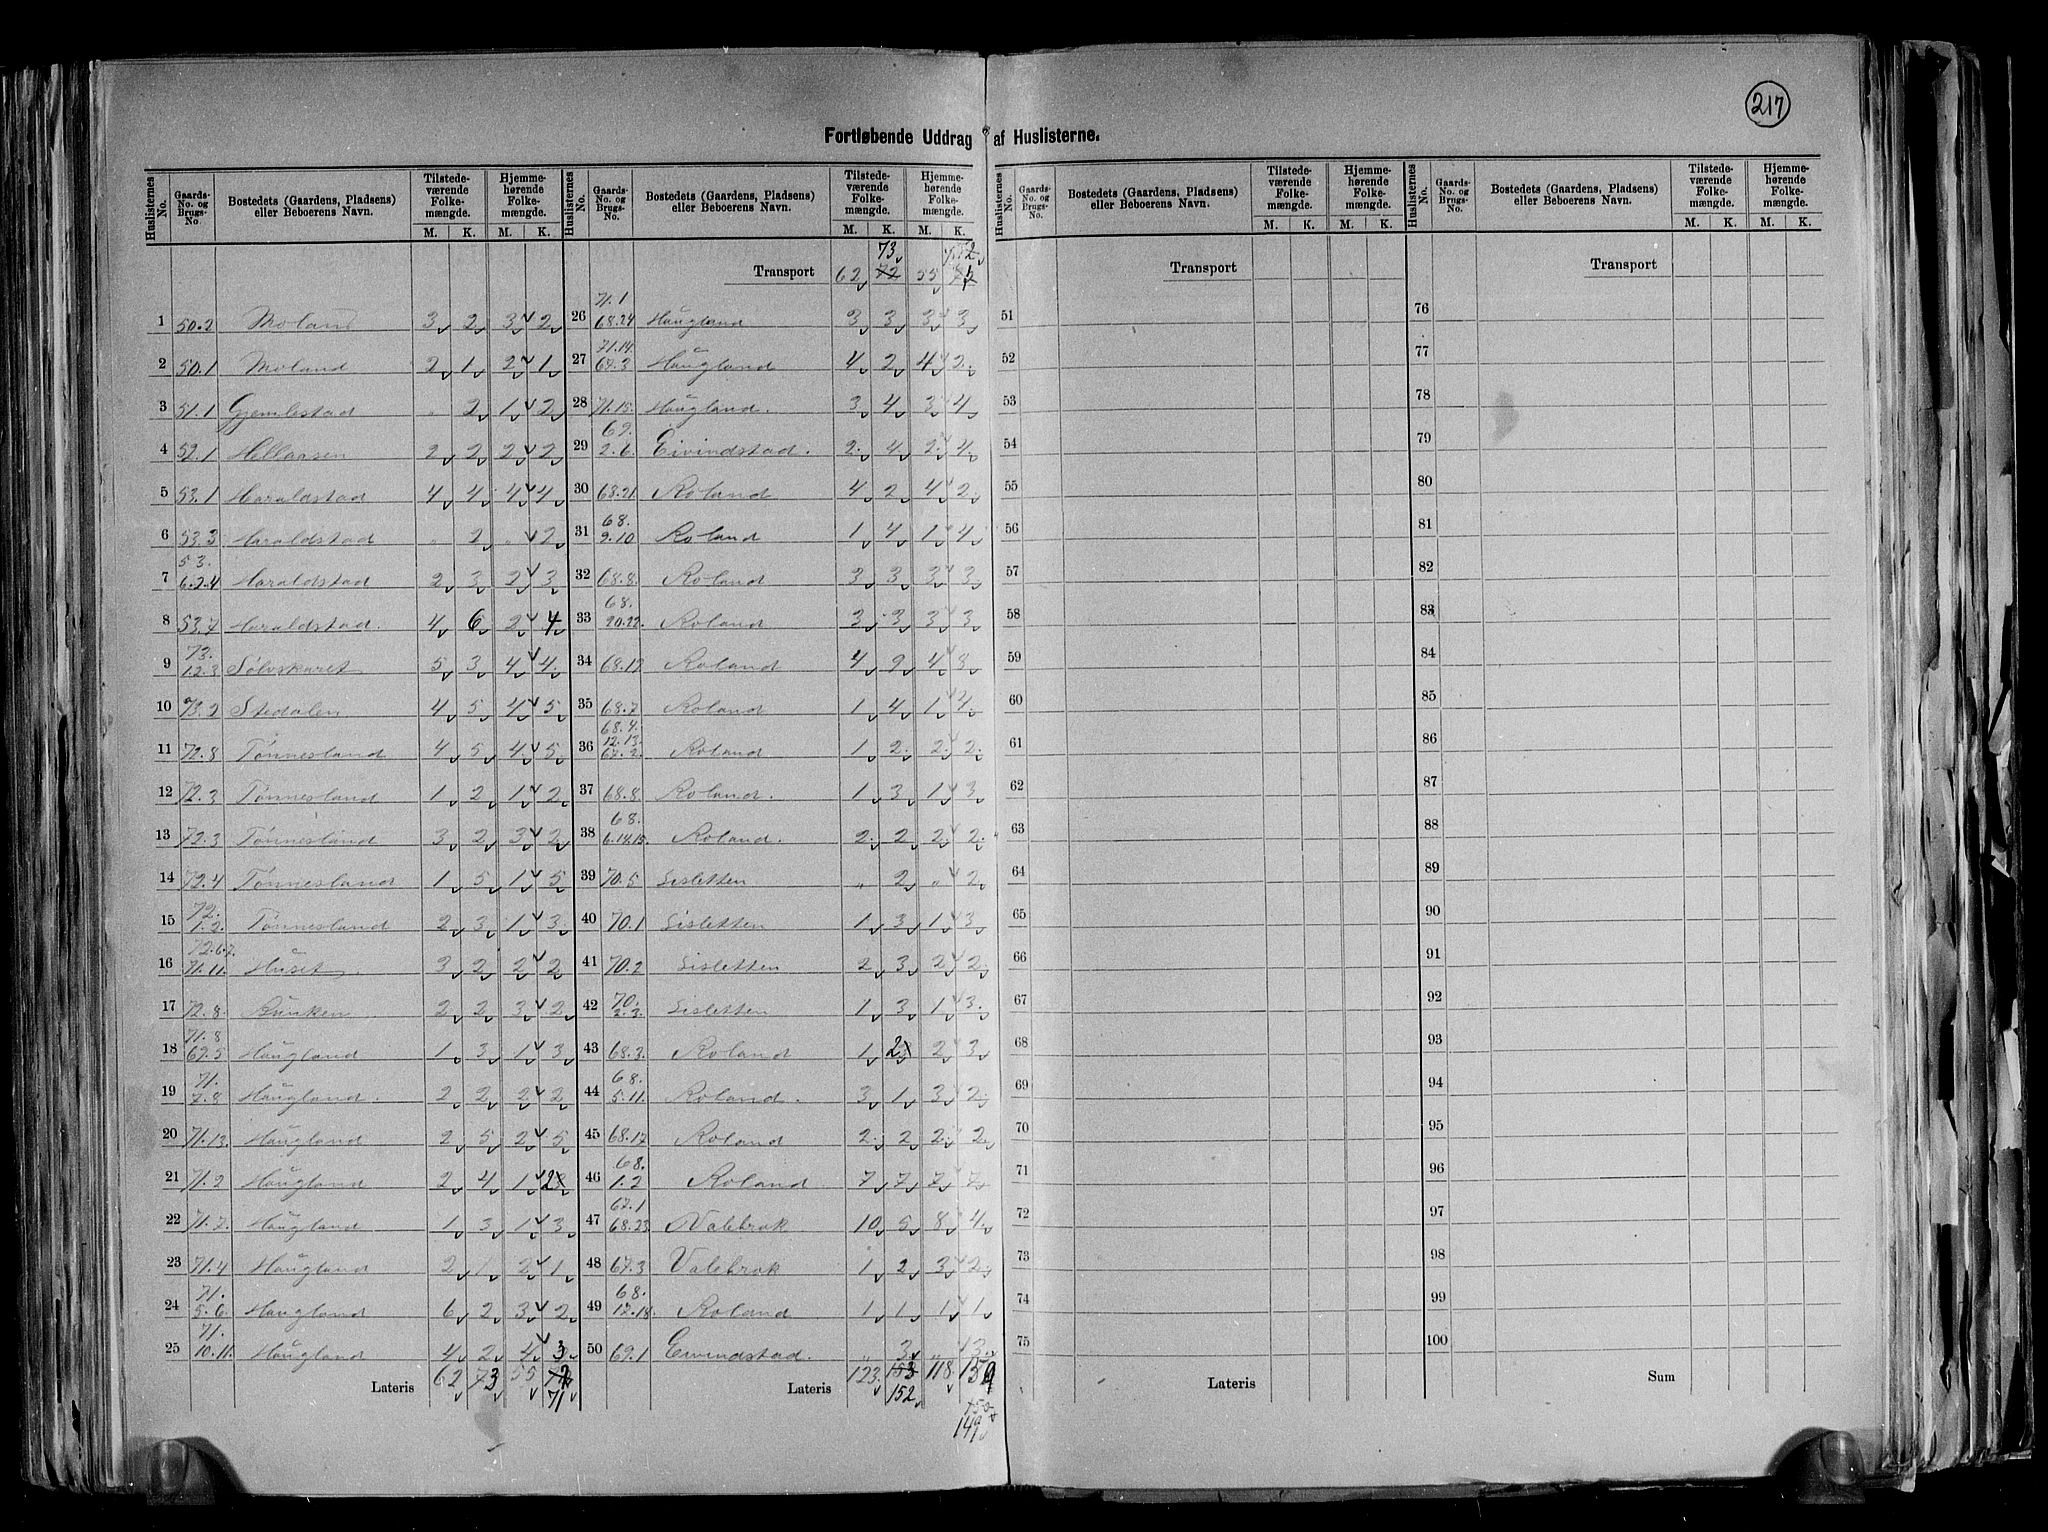 217
Fortløbende Uddrag af Huslisterne.
Huslisternes No. | Gaards-No. og Brugs-No. | Bostedets (Gaardens, Pladsens) eller Beboerens Navn. | Tilstedeværende Folkemængde. M. K. | Hjemmehørende Folkemængde. M. K.
1 50.2 Moland 3 2 3 2
2 50.1 Moland 2 1 2 1
3 51.1 Gjemlestad " 2 1 2
4 52.1 Hellaasen 2 2 2 2
5 53.1 Haraldstad 4 4 4 4
6 53.3 Haraldstad " 2 " 2
7 53. 6.2.4 Haraldstad 2 3 2 3
8 53.7 Haraldstad. 4 6 2 4
9 73. 1.2.3 Sølvskaret 5 3 4 4
10 73.2 Stedalen 4 5 4 5
11 72.8 Tønnesland 4 5 4 5
12 72.3 Tønnesland 1 2 1 2
13 72.3 Tønnesland 3 2 3 2
14 72.4 Tønnesland 1 5 1 5
15 72. 1.2. Tønnesland 2 3 1 3
16 72.6.7. 71.11. Huset 3 2 2 2
17 72.8. Runken 2 2 3 2
18 71.8 67.5 Haugland 1 3 1 3
19 71. 7.8 Haugland. 2 2 2 2
20 71.13. Haugland 2 5 2 5
21 71.2 Haugland 2 4 1 2
22 71.7. Haugland 1 3 1 3
23 71.4 Haugland 2 1 2 1
24 71. 5.6. Haugland 6 2 3 2
25 71. 10.11. Haugland 4 2 4 3
Lateris 62 73 55 72
71
Transport 62 72 55
73 72
26 71.1 68.24 Haugland 3 3 3 3
27 71.14. 67.3 Haugland 4 2 4 2
28 71.15. Haugland. 3 4 3 4
29 69. 2.6. Eivindstad. 2 4 2 4
30 68.21. Roland 4 2 4 2
31 68. 9.10 Roland 1 4 1 4
32 68.8. Roland 3 3 3 3
33 68. 20.22. Roland 3 3 3 3
34 68.19 Roland 4 9 4 8
35 68.7 Roland 1 4 1 4
36 68.4. 12.13. 67.2. Roland 1 2 2 2
37 68.8. Roland. 1 3 1 3
38 68. 6.14.15. Roland. 2 2 2 2
39 70.5 Lisletten " 2 " 2
40 70.1 Lisletten 1 3 1 3
41 70.2 Lisletten 2 3 2 2
42 70. 2.3. Lisletten 1 3 1 3
43 68.3. Roland 1 2 2 3
44 68. 5.11. Roland. 3 1 3 2
45 68.17. Roland 2 2 2 2
46 68. 1.2 Roland 7 7 7 7
47 67.1 68.23. Valebrok 10 5 8 4
48 67.3 Valebrok 1 2 3 2
49 68. 17.18. Roland 1 1 1 1
50 69.1 Eivindstad. " 3 " 3
Lateris 123 153 118 159
152
150
149
Huslisternes No. | Gaards-No. og Brugs-No. | Bostedets (Gaardens, Pladsens) eller Beboerens Navn. | Tilstedeværende Folkemængde. M. K. | Hjemmehørende Folkemængde. M. K.
Transport
51
52
53
54
55
56
57
58
59
60
61
62
63
64
65
66
67
68
69
70
71
72
73
74
75
Lateris
Transport
76
77
78
79
80
81
82
83
84
85
86
87
88
89
90
91
92
93
94
95
96
97
98
99
100
Sum